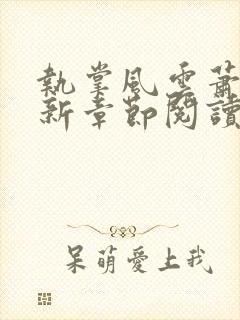 執掌風雲蕭
新章節閱讀
呆萌愛上我